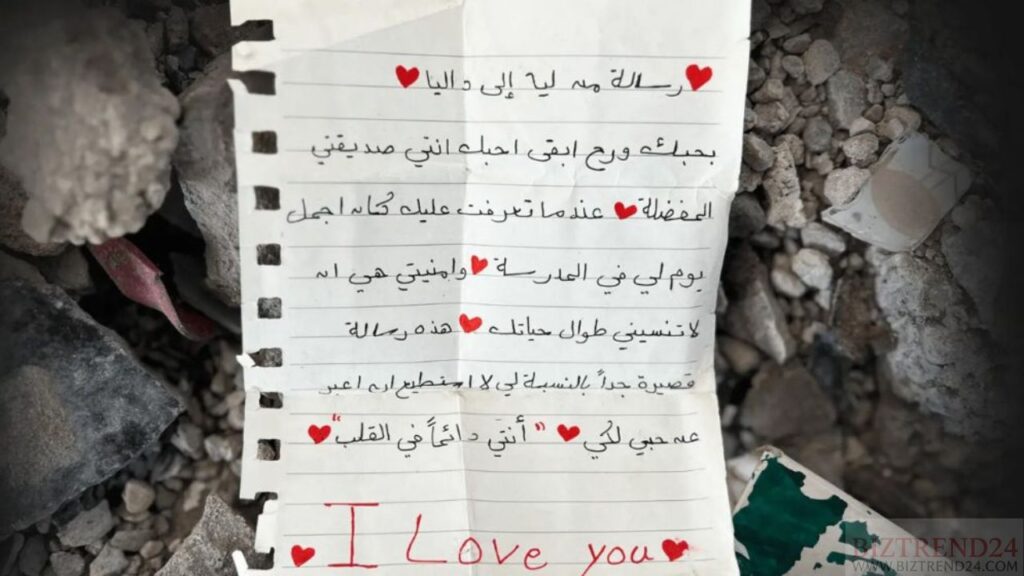 ♥رسالة من ليا إلى داليا♥
بحبك ورح ابقى احبك انتي صديقتي
المفضلة♥ عندما تعرفت عليك كان اجمل
يوم لي في المدرسة♥وامنيتي هي ان
لا تنسيني طوال حياتك♥ هذه رسالة
قصيرة جداً بالنسبة لي لا استطيع ان اعبر
عن حبي لكي♥ "أنتي دائماً في القلب"♥
♥I Love you♥
BIZTREND24
WWW.BIZTREND24.COM